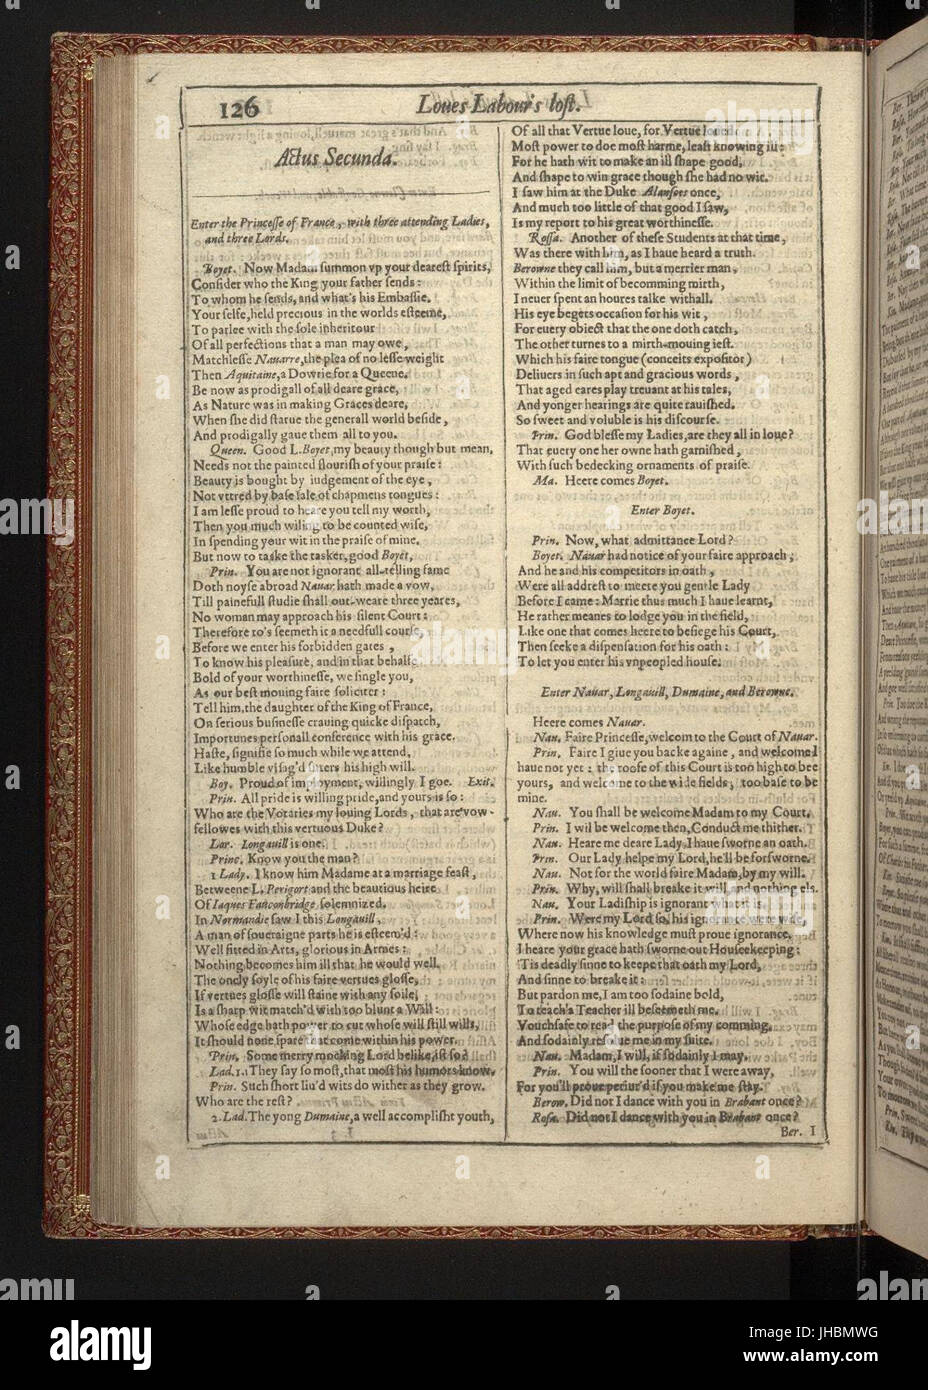 126
Loues Labour's lost.
Actus Secunda.
Enter the Princesse of France, with three attending Ladies,
and three Lords.
Boyet. Now Madam summon vp your dearest spirits,
Consider who the King your father sends:
To whom he sends, and what's his Embassie.
Your selfe, held precious in the worlds esteeme,
To parlee with the sole inheritour
Of all perfections that a man may owe,
Matchlesse Nauarre, the plea of no lesse weight
Then Aquitaine, a Dowrie for a Queene.
Be now as prodigall of all deare grace,
As Nature was in making Graces deare,
When she did starue the generall world beside,
And prodigally gaue them all to you.
Queen. Good L. Boyet, my beauty though but mean,
Needs not the painted flourish of your praise:
Beauty is bought by iudgement of the eye,
Not vttred by base sale of chapmens tongues:
I am lesse proud to heare you tell my worth,
Then you much wiling to be counted wise,
In spending your wit in the praise of mine.
But now to taske the tasker, good Boyet,
Prin. You are not ignorant all-telling fame
Doth noyse abroad Nauar hath made a vow,
Till painefull studie shall out-weare three yeares,
No woman may approach his silent Court:
Therefore to's seemeth it a needfull course,
Before we enter his forbidden gates,
To know his pleasure, and in that behalfe
Bold of your worthinesse, we single you,
As our best mouing faire soliciter:
Tell him, the daughter of the King of France,
On serious businesse crauing quicke dispatch,
Importunes personall conference with his grace.
Haste, signifie so much while we attend,
Like humble visag'd suters his high will.
Boy. Proud of imployment, willingly I goe. Exit.
Prin. All pride is willing pride, and yours is so:
Who are the Votaries my louing Lords, that are vow-
fellowes with this vertuous Duke?
Lor. Longauill is one.
Princ. Know you the man?
1 Lady. I know him Madame at a marriage feast,
Betweene L. Perigort and the beautious heire
Of Iaques Fauconbridge solemnized.
In Normandie saw I this Longauill,
A man of soueraigne parts he is esteem'd:
Well fitted in Arts, glorious in Armes:
Nothing becomes him ill that he would well.
The onely soyle of his faire vertues glosse,
If vertues glosse will staine with any soile,
Is a sharp wit match'd with too blunt a Will:
Whose edge hath power to cut whose will still wills,
It should none spare that come within his power.
Prin. Some merry mocking Lord belike, ist so?
Lad. 1. They say so most, that most his humors know.
Prin. Such short liu'd wits do wither as they grow.
Who are the rest?
2. Lad. The yong Dumaine, a well accomplisht youth,
Of all that Vertue loue, for Vertue loued.
Most power to doe most harme, least knowing ill:
For he hath wit to make an ill shape good,
And shape to win grace though she had no wit.
I saw him at the Duke Alansoes once,
And much too little of that good I saw,
Is my report to his great worthinesse.
Rossa. Another of these Students at that time,
Was there with him, as I haue heard a truth.
Berowne they call him, but a merrier man,
Within the limit of becomming mirth,
I neuer spent an houres talke withall.
His eye begets occasion for his wit,
For euery obiect that the one doth catch,
The other turnes to a mirth-mouing iest.
Which his faire tongue (conceits expositor)
Deliuers in such apt and gracious words,
That aged eares play treuant at his tales,
And yonger hearings are quite rauished.
So sweet and voluble is his discourse.
Prin. God blesse my Ladies, are they all in loue?
That euery one her owne hath garnished,
With such bedecking ornaments of praise.
Ma. Heere comes Boyet.
Enter Boyet.
Prin. Now, what admittance Lord?
Boyet. Nauar had notice of your faire approach;
And he and his competitors in oath,
Were all addrest to meete you gentle Lady
Before I came: Marrie thus much I haue learnt,
He rather meanes to lodge you in the field,
Like one that comes heere to besiege his Court,
Then seeke a dispensation for his oath:
To let you enter his vnpeopled house.
Enter Nauar, Longauill, Dumaine, and Berowne.
Heere comes Nauar.
Nau. Faire Princesse, welcom to the Court of Nauar.
Prin. Faire I giue you backe againe, and welcome I
haue not yet: the roofe of this Court is too high to bee
yours, and welcome to the wide fields, too base to be
mine.
Nau. You shall be welcome Madam to my Court.
Prin. I wil be welcome then, Conduct me thither.
Nau. Heare me deare Lady, I haue sworne an oath.
Prin. Our Lady helpe my Lord, he'll be forsworne.
Nau. Not for the world faire Madam, by my will.
Prin. Why, will shall breake it will, and nothing els.
Nau. Your Ladiship is ignorant what it is.
Prin. Were my Lord so, his ignorance were wise,
Where now his knowledge must proue ignorance.
I heare your grace hath sworne out Housekeeping:
'Tis deadly sinne to keepe that oath my Lord,
And sinne to breake it:
But pardon me, I am too sodaine bold,
To teach a Teacher ill beseemeth me.
Vouchsafe to read the purpose of my comming,
And sodainly resolue me in my suite.
Nau. Madam, I will, if sodainly I may.
Prin. You will the sooner that I were away,
For you'll proue periur'd if you make me stay.
Berow. Did not I dance with you in Brabant once?
Rosa. Did not I dance with you in Brabant once?
Ber. I
alamy
Image ID: JHBMWG
www.alamy.com